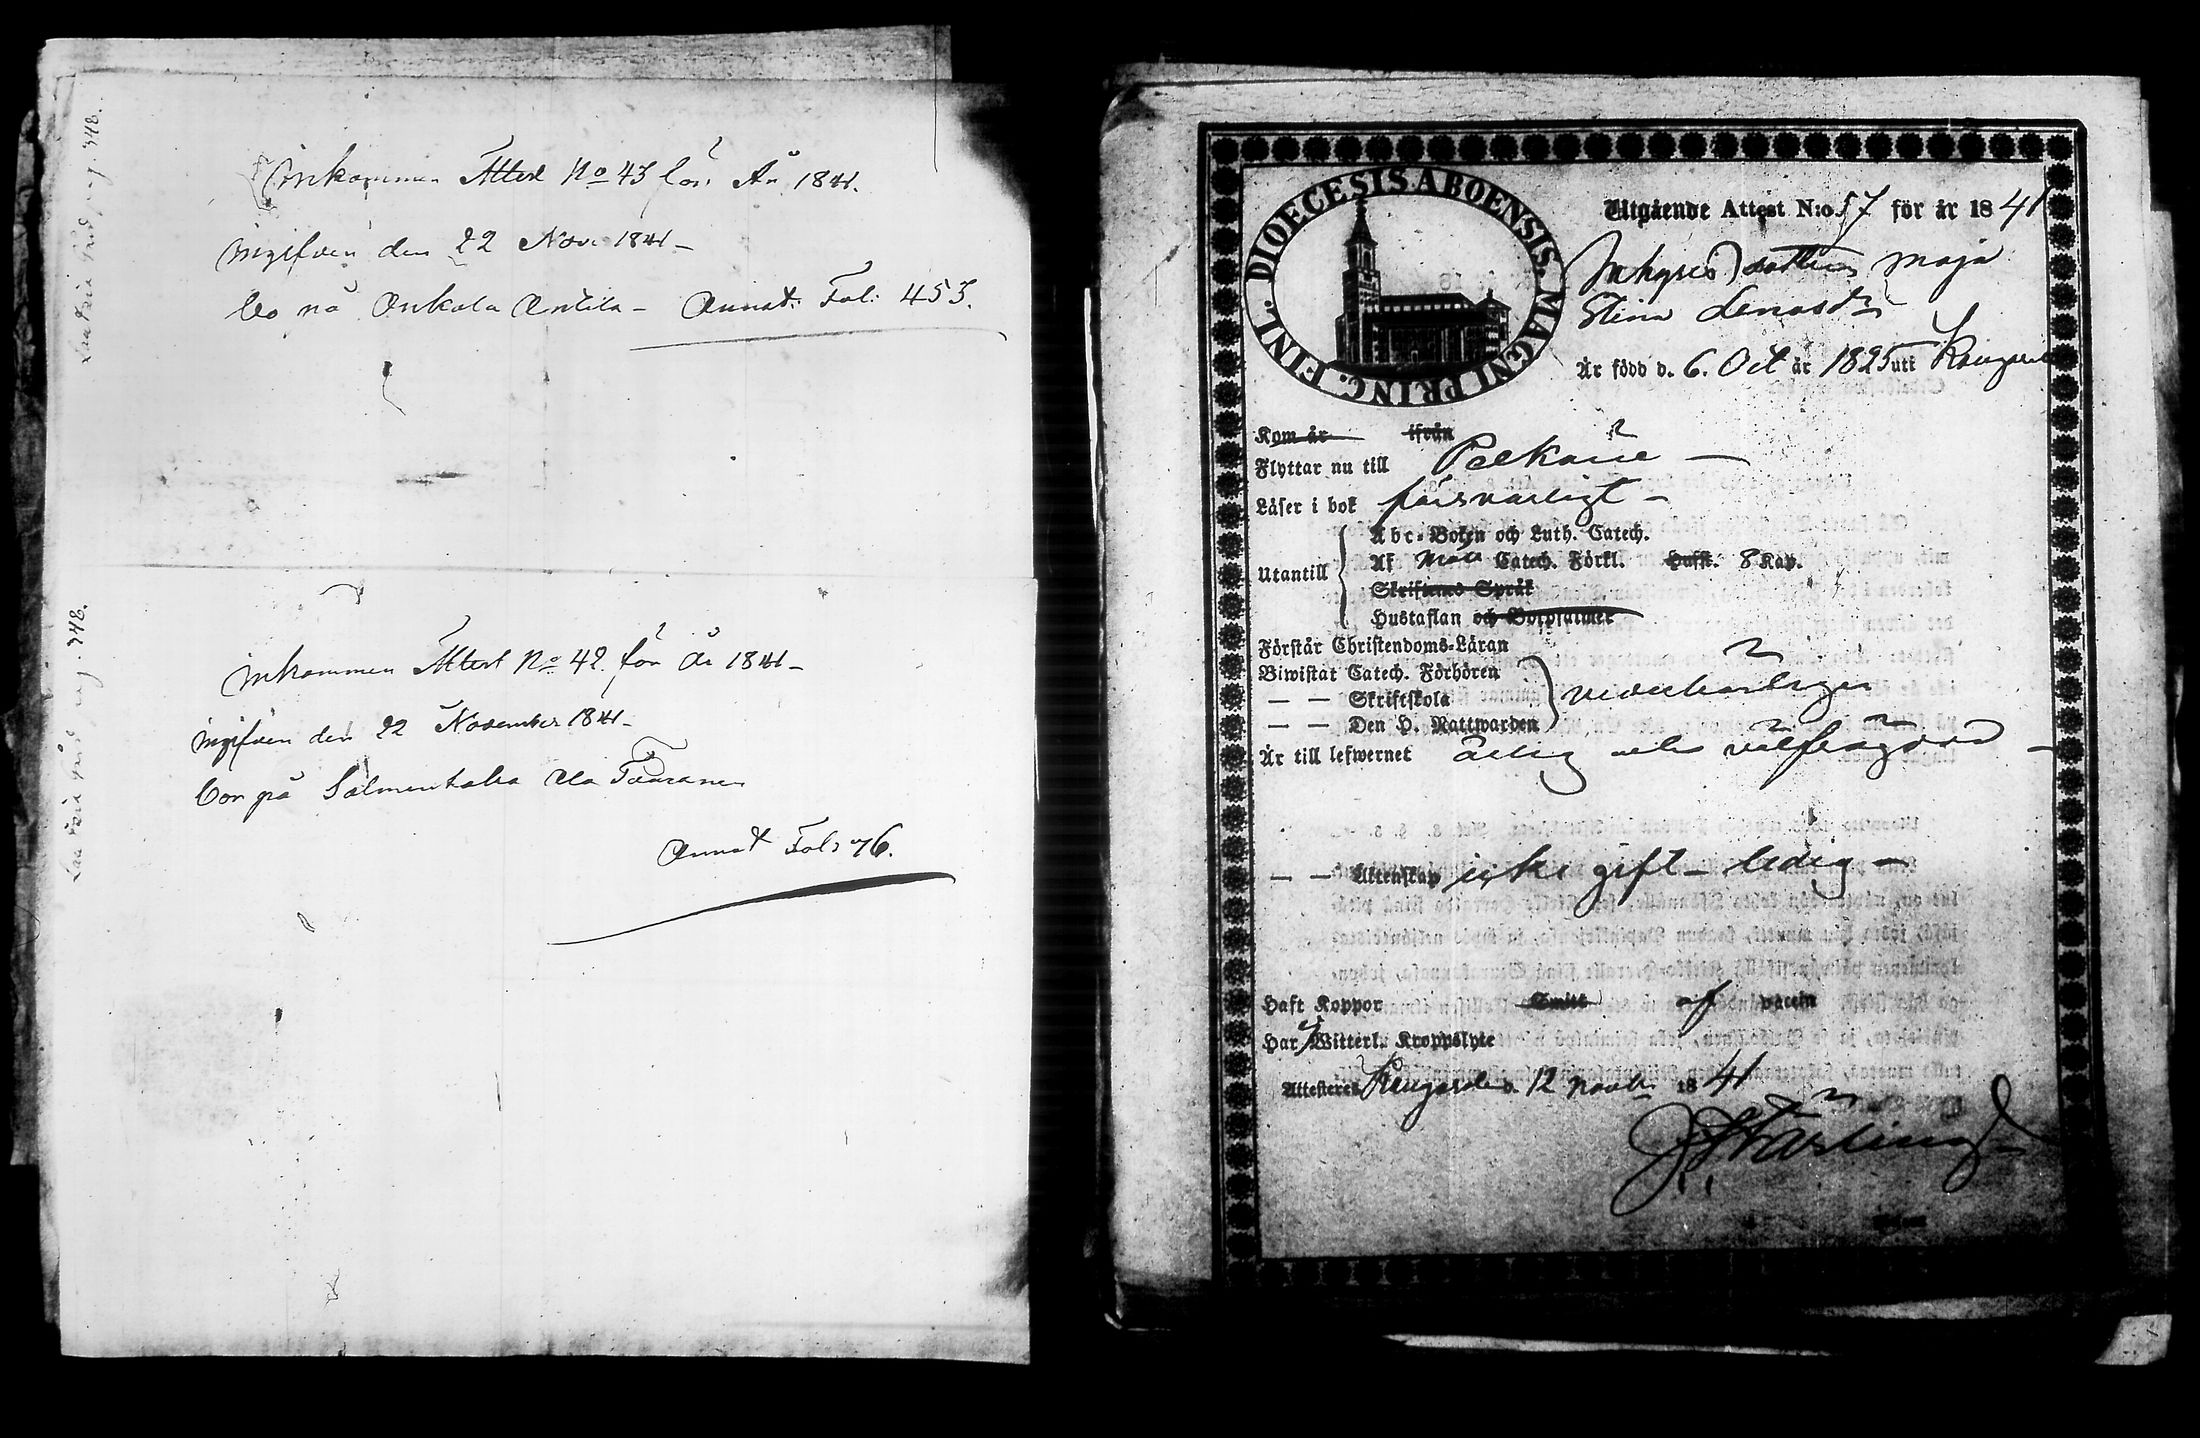 Inkommen Attest No 43 för År 1841.
ingifven den 22 Nov. 1841 –
bo på Onkala Antila – Annot: Fol: 453.
Inkommen Attest No 42. för År 1841 –
ingifven den 22 November 1841 –
bor på Salmentaka
Annot Fol: 76.
DIOECESIS ABOENSIS. MAGNI PRINC. FINL.
Utgående Attest N:o 57 för år 1841
Inhyses dottren Maja
Stina
Är född d. 6. Oct år 1825 uti
Kom år ifrån
Flyttar nu till Pelkäne –
Läser i bok försvarligt –
Utantill
Abc-Boken och Luth. Catech.
Af Catech. Förkl. Husk. 8 Kap.
Skriftenes Språk
Hustaflan och Botpsalmer
Förstår Christendoms-Läran
Biwistat Catech. Förhören
— — Skriftskola
— — Den H. Nattwarden
vederbörligen
Är till lefwernet ärlig och välfrägdad –
— — Äktenskap icke gift – ledig –
Haft Koppor Smitt af vaccin
Har Witterl. Kroppslyte
Attesteres d. 12 Novb: 1841